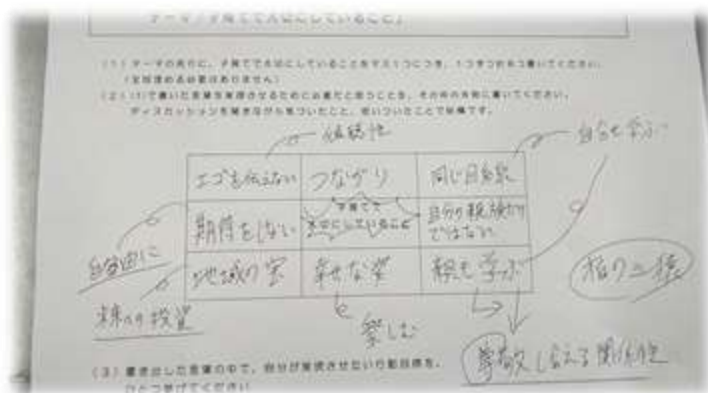 テーマ「子育てで大切にしていること」
(1) テーマの周りに、子育てで大切にしていることをマス1つにつき、1つずつ書いてください。
(全部埋める必要はありません)
(2) (1)で書いた言葉を実現させるために必要だと思うことを、その枠の外側に書いてください。
ディスカッションを聞きながら気づいたこと、思いついたことで結構です。
価値性
自分も学ぶ
エゴを伝えない つながり 同じ目線
期待をしない 子育てで大切にしていること 自分の親族だけではない
地域の宝 幸せな姿 親も学ぶ
自由に
未来への投資
楽しむ
尊敬し合える関係性
(3) 書き出した言葉の中で、自分が実現させたい行動目標を、
ひとつ挙げてください